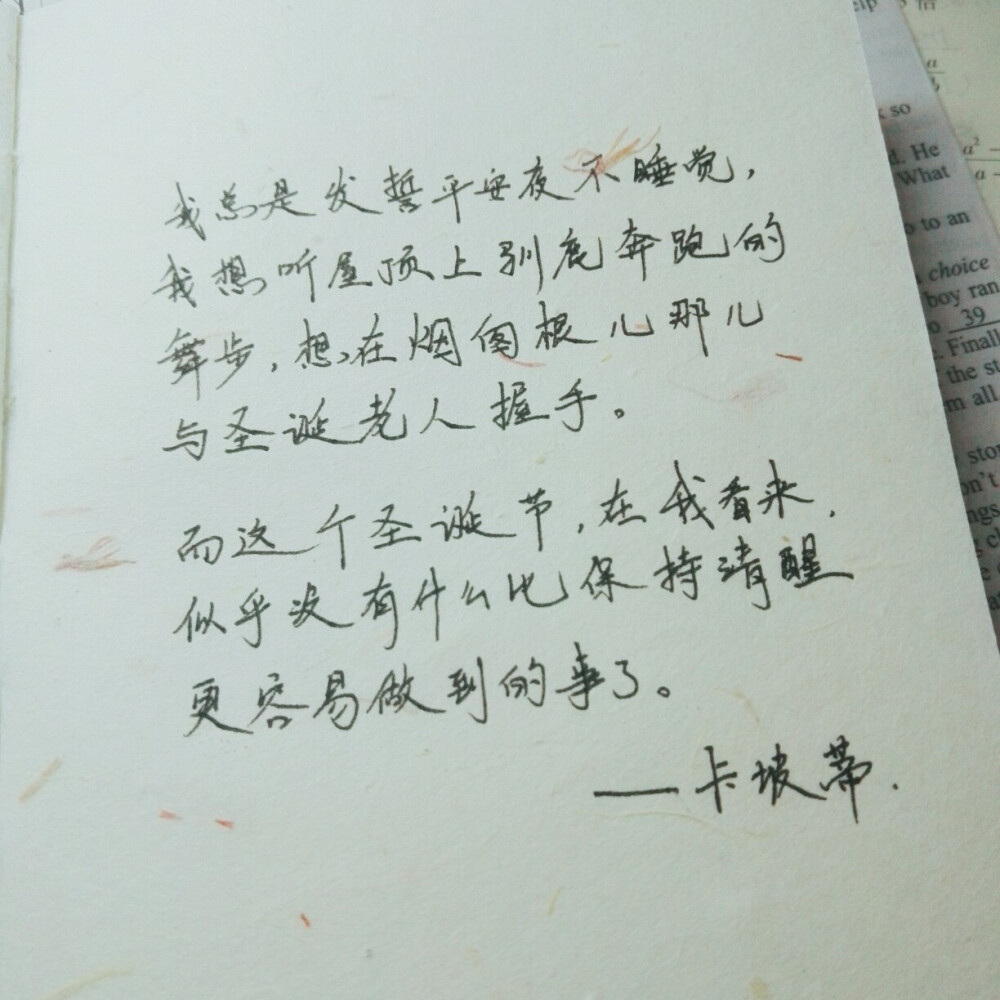 我总是发誓平安夜不睡觉，
我想听屋顶上驯鹿奔跑的
舞步，想在烟囱根儿那儿
与圣诞老人握手。
而这个圣诞节，在我看来，
似乎没有什么比保持清醒
更容易做到的事了。
——卡坡蒂.
so
. He
What
to an
choice
boy ran
39
. Finall
the st
m all
stor
on't
ngs